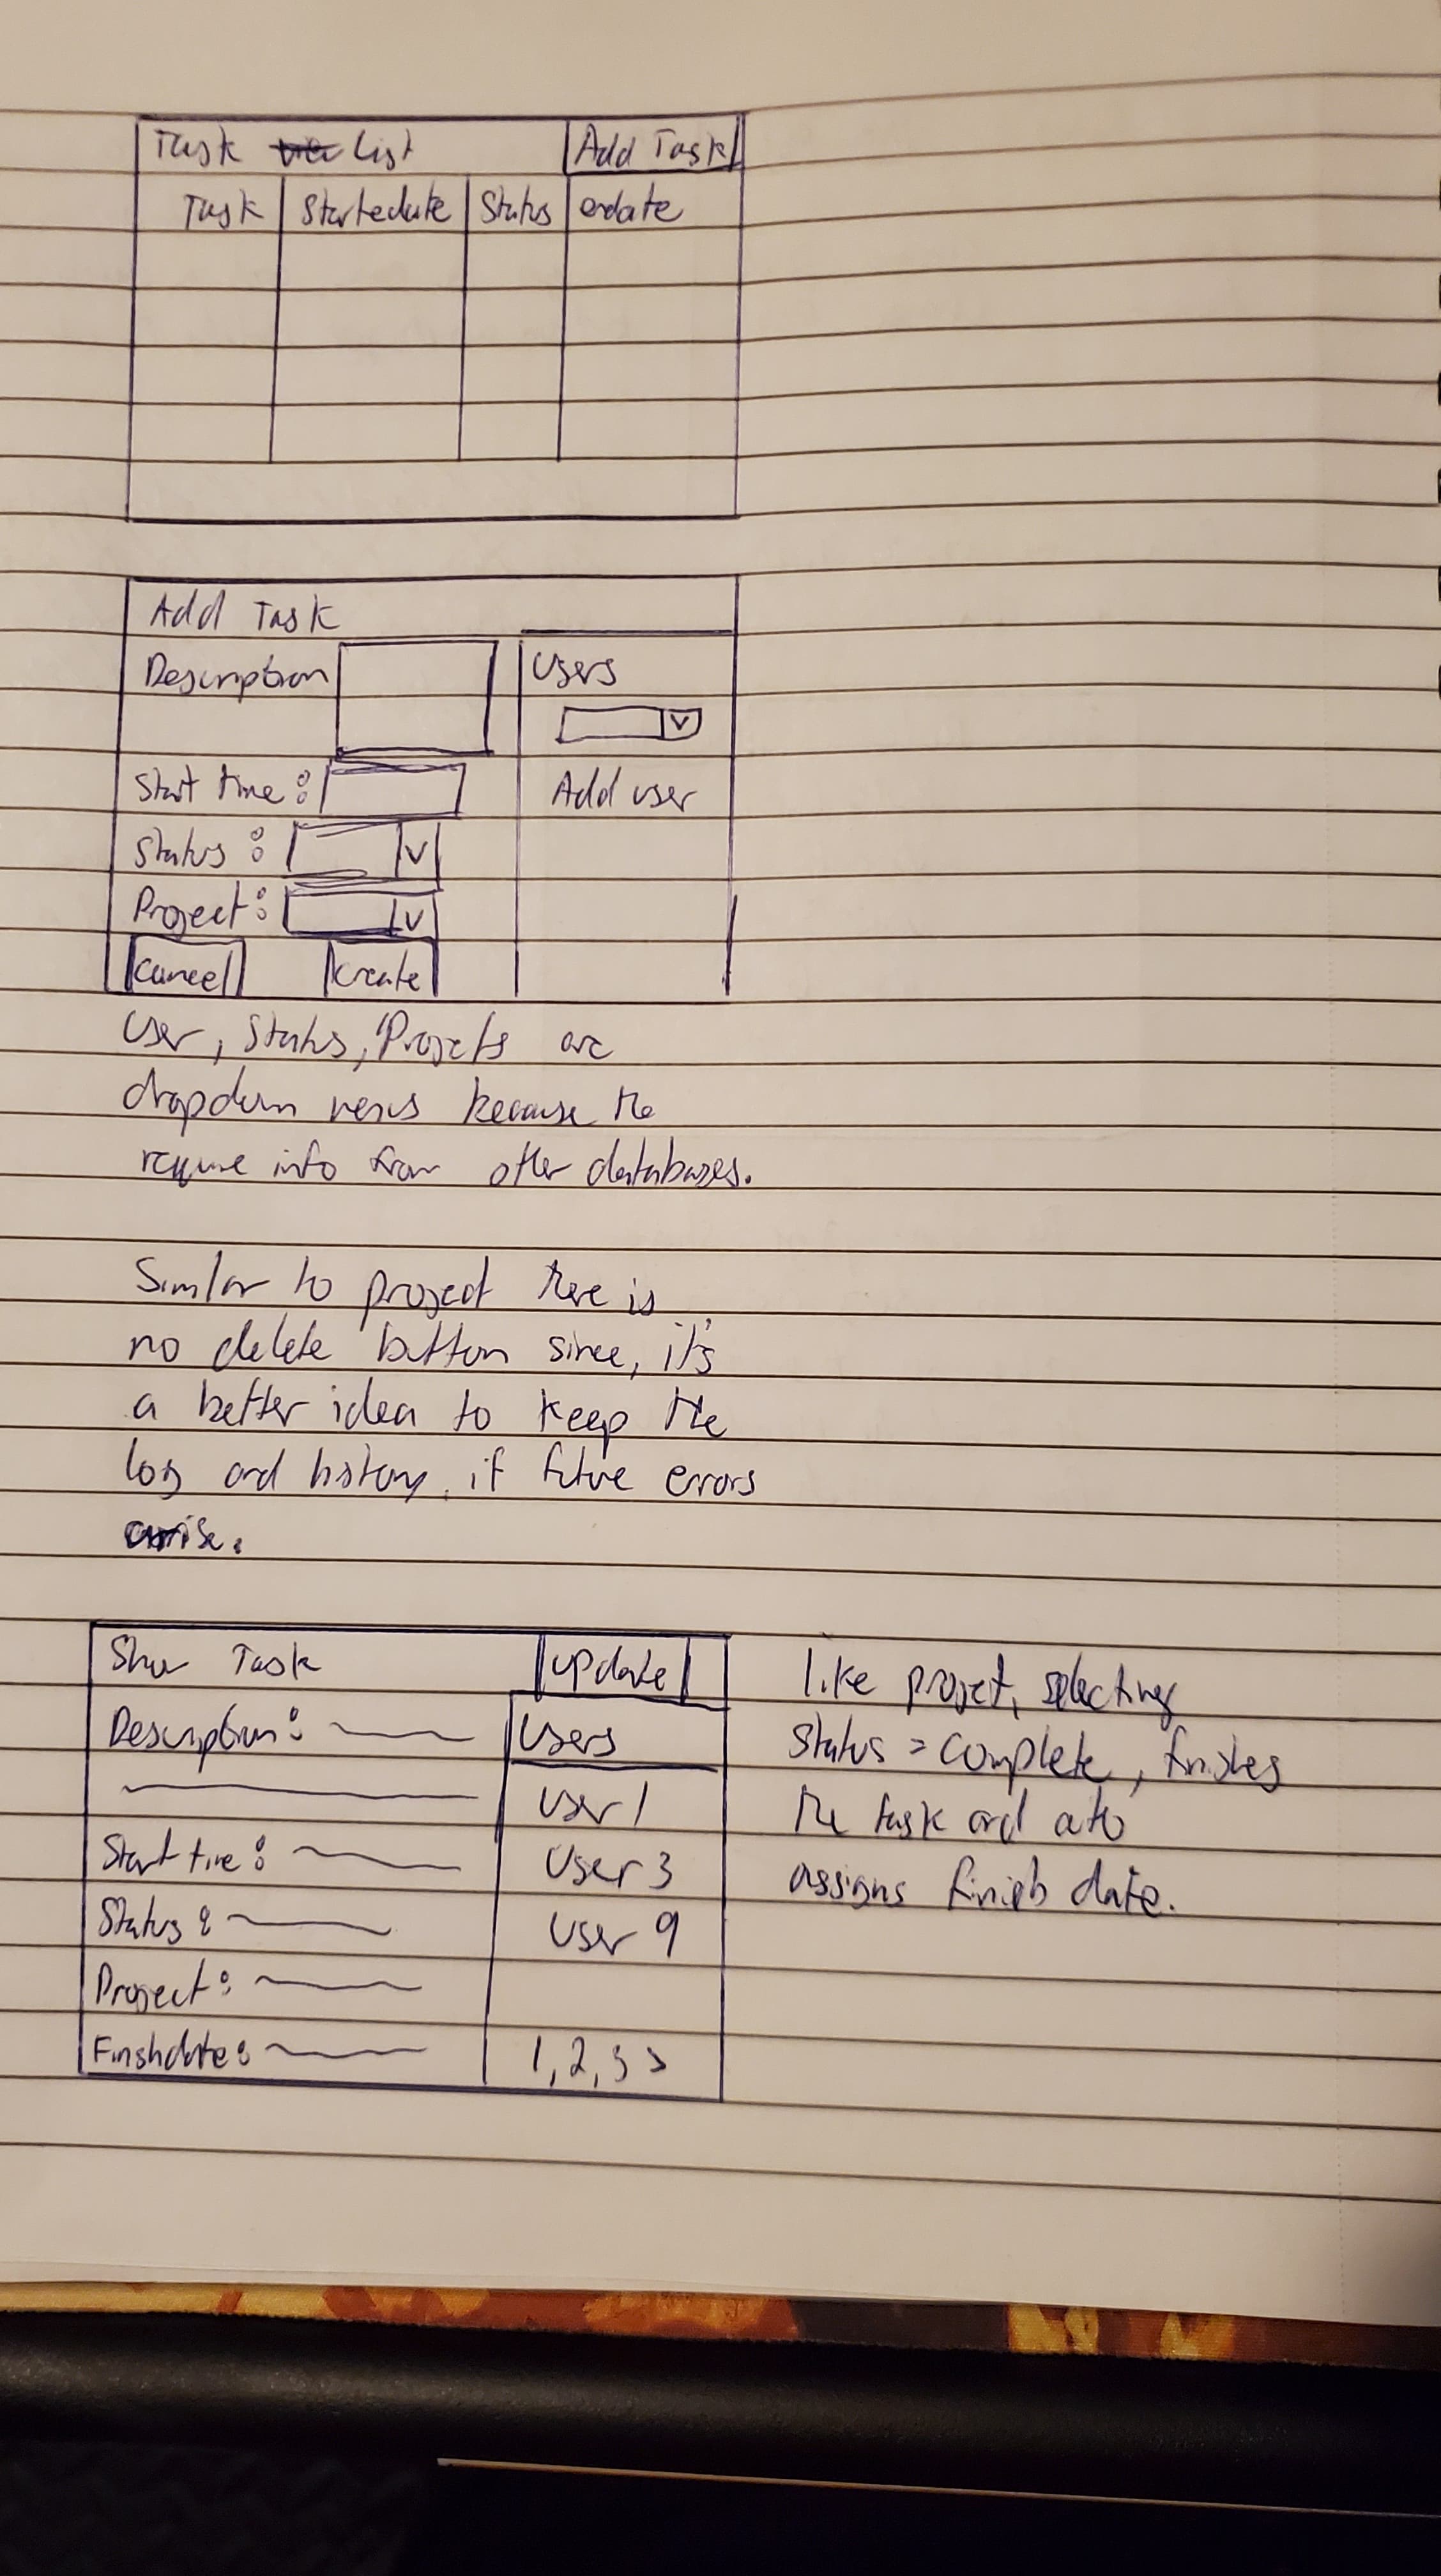 Task List
Add Task
Task Startedate Status endate
Add Task
Description
Users
V
Start time:
Add user
Status: V
Project: V
Cancel create
User, Status, Projects are
dropdown menus because the
require info from other databases.
Similar to project there is
no delete button since, it's
a better idea to keep the
log and history, if future errors
arise.
Show Task
update
Description:
Users
User 1
Start time:
User 3
Status:
User 9
Project:
Finishdate:
1, 2, 3 >
like project, selecting
Status = complete, finishes
the task and auto
assigns finish date.